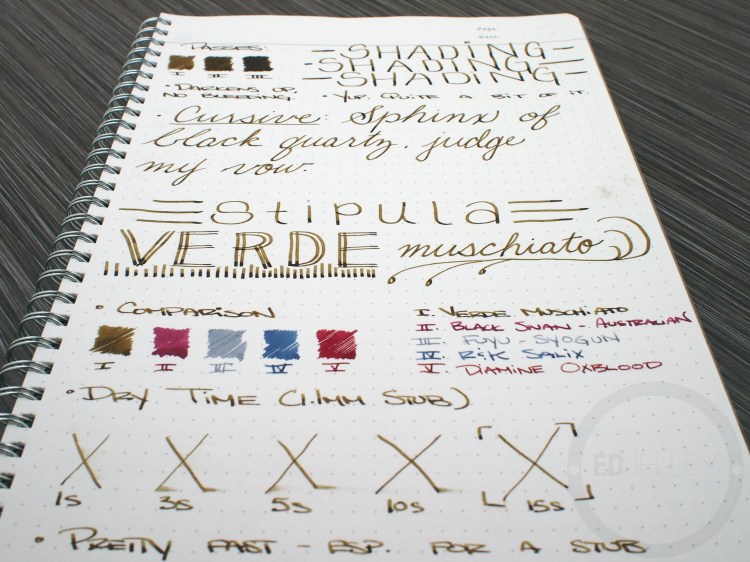 PASSES:
I II III
- SHADING -
- SHADING -
- SHADING -
· DARKENS UP,
NO BLEEDING.
· YUP. QUITE A BIT OF IT.
· Cursive: Sphinx of
black quartz, judge
my vow.
Stipula
VERDE muschiato
· COMPARISON
I II III IV V
I. VERDE MUSCHIATO
II. BLACK SWAN - AUSTRALIAN
III FUYU-SYOGUN
IV. R&K SALIX
V. DIAMINE OXBLOOD
· DRY TIME (1.1MM STUB)
X X X X X
1s 3s 5s 10s 15s
· PRETTY FAST - ESP. FOR A STUB